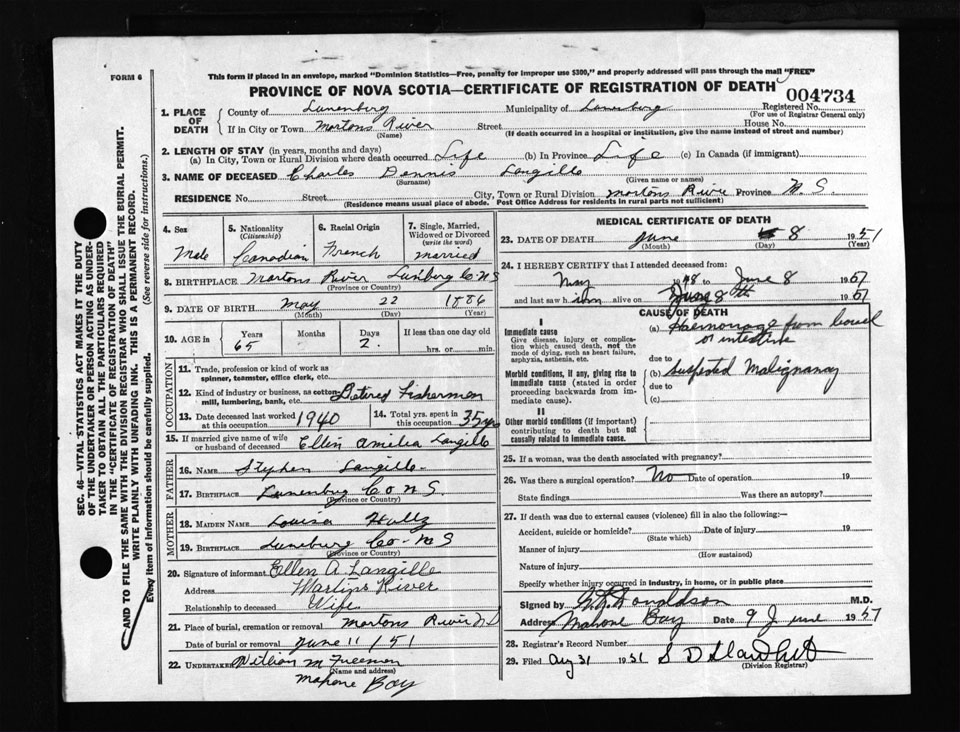 FORM 6
This form if placed in an envelope, marked "Dominion Statistics—Free, penalty for improper use $300," and properly addressed will pass through the mail "FREE"
PROVINCE OF NOVA SCOTIA—CERTIFICATE OF REGISTRATION OF DEATH
004734
1. PLACE OF DEATH
County of Lunenburg Municipality of Lunenburg Registered No.
(For use of Registrar General only)
If in City or Town Martons River Street House No.
(Name) (If death occurred in a hospital or institution, give the name instead of street and number)
2. LENGTH OF STAY (in years, months and days)
(a) In City, Town or Rural Division where death occurred Life (b) In Province Life (c) In Canada (if immigrant)
3. NAME OF DECEASED Charles Dennis Langille
(Surname) (Given name or names)
RESIDENCE No. Street City, Town or Rural Division Martons River Province N.S.
(Residence means usual place of abode. Post Office Address for residents in rural parts not sufficient)
4. Sex
Male
5. Nationality (Citizenship)
Canadian
6. Racial Origin
French
7. Single, Married, Widowed or Divorced (write the word)
married
8. BIRTHPLACE Martons River Lunburg Co N S
(Province or Country)
9. DATE OF BIRTH May 22 1886
(Month) (Day) (Year)
10. AGE in
Years Months Days If less than one day old
65 2. hrs. or min.
OCCUPATION
11. Trade, profession or kind of work as spinner, teamster, office clerk, etc.
12. Kind of industry or business, as cotton mill, lumbering, bank, etc. Retired Fisherman
13. Date deceased last worked at this occupation 1940
14. Total yrs. spent in this occupation 35 yrs
15. If married give name of wife or husband of deceased Ellen Amilia Langille
FATHER
16. Name Stephen Langille
17. Birthplace Lunenburg Co N S.
(Province or Country)
MOTHER
18. Maiden Name Louisa
19. Birthplace Luneburg Co - N S
(Province or Country)
20. Signature of informant Ellen A Langille
Address Martins River
Relationship to deceased Wife
21. Place of burial, cremation or removal Martons River N S
Date of burial or removal June 11 / 51
22. UNDERTAKER William M Freeman
(Name and address)
Mahone Bay
MEDICAL CERTIFICATE OF DEATH
23. DATE OF DEATH June 8 1951
(Month) (Day) (Year)
24. I HEREBY CERTIFY that I attended deceased from:
1948 to June 8 1951
and last saw him alive on June 8th 1951
CAUSE OF DEATH
I
Immediate cause
Give disease, injury or complication which caused death, not the mode of dying, such as heart failure, asphyxia, asthenia, etc.
(a) Haemorrage from bowel or intestine
due to
Morbid conditions, if any, giving rise to immediate cause (stated in order proceeding backwards from immediate cause).
(b) Suspected Malignancy
due to
(c)
II
Other morbid conditions (if important) contributing to death but not causally related to immediate cause.
25. If a woman, was the death associated with pregnancy?
26. Was there a surgical operation? No Date of operation 19
State findings Was there an autopsy?
27. If death was due to external causes (violence) fill in also the following:—
Accident, suicide or homicide? Date of injury 19
(State which)
Manner of injury
(How sustained)
Nature of injury
Specify whether injury occurred in industry, in home, or in public place
Signed by Donaldson M.D.
Address Mahone Bay Date 9 June 1951
28. Registrar's Record Number
29. Filed Aug 31 1951 S D
(Division Registrar)
SEC. 46—VITAL STATISTICS ACT MAKES IT THE DUTY
OF THE UNDERTAKER OR PERSON ACTING AS UNDER-
TAKER TO OBTAIN ALL THE PARTICULARS REQUIRED
IN THE "CERTIFICATE OF REGISTRATION OF DEATH"
AND TO FILE THE SAME WITH THE DIVISION REGISTRAR WHO SHALL ISSUE THE BURIAL PERMIT.
WRITE PLAINLY WITH UNFADING INK. THIS IS A PERMANENT RECORD.
Every item of information should be carefully supplied. (See reverse side for instructions.)